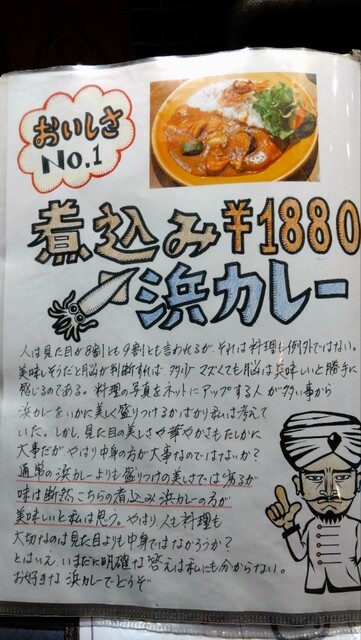 おいしさ
No.1
煮込み¥1880
浜カレー
人は見た目が8割とも9割とも言われるが、それは料理も例外ではない。
美味しそうだと脳が判断すれば多少マズくても脳は美味しいと勝手に
感じるのである。料理の写真をネットにアップする人が多い事から
浜カレーをいかに美しく盛りつけるかばかり私は考えて
いた。しかし、見た目の美しさや華やかさもたしかに
大事だがやはり中身の方が大事なのではないか?
通常の浜カレーよりも盛りつけの美しさでは劣るが
味は断然こちらの煮込み浜カレーの方が
美味しいと私は思う。やはり、人も料理も
大切なのは見た目よりも中身ではなかろうか?
とはいえ、いまだに明確な答えは私にも分からない。
お好きな浜カレーでどうぞ